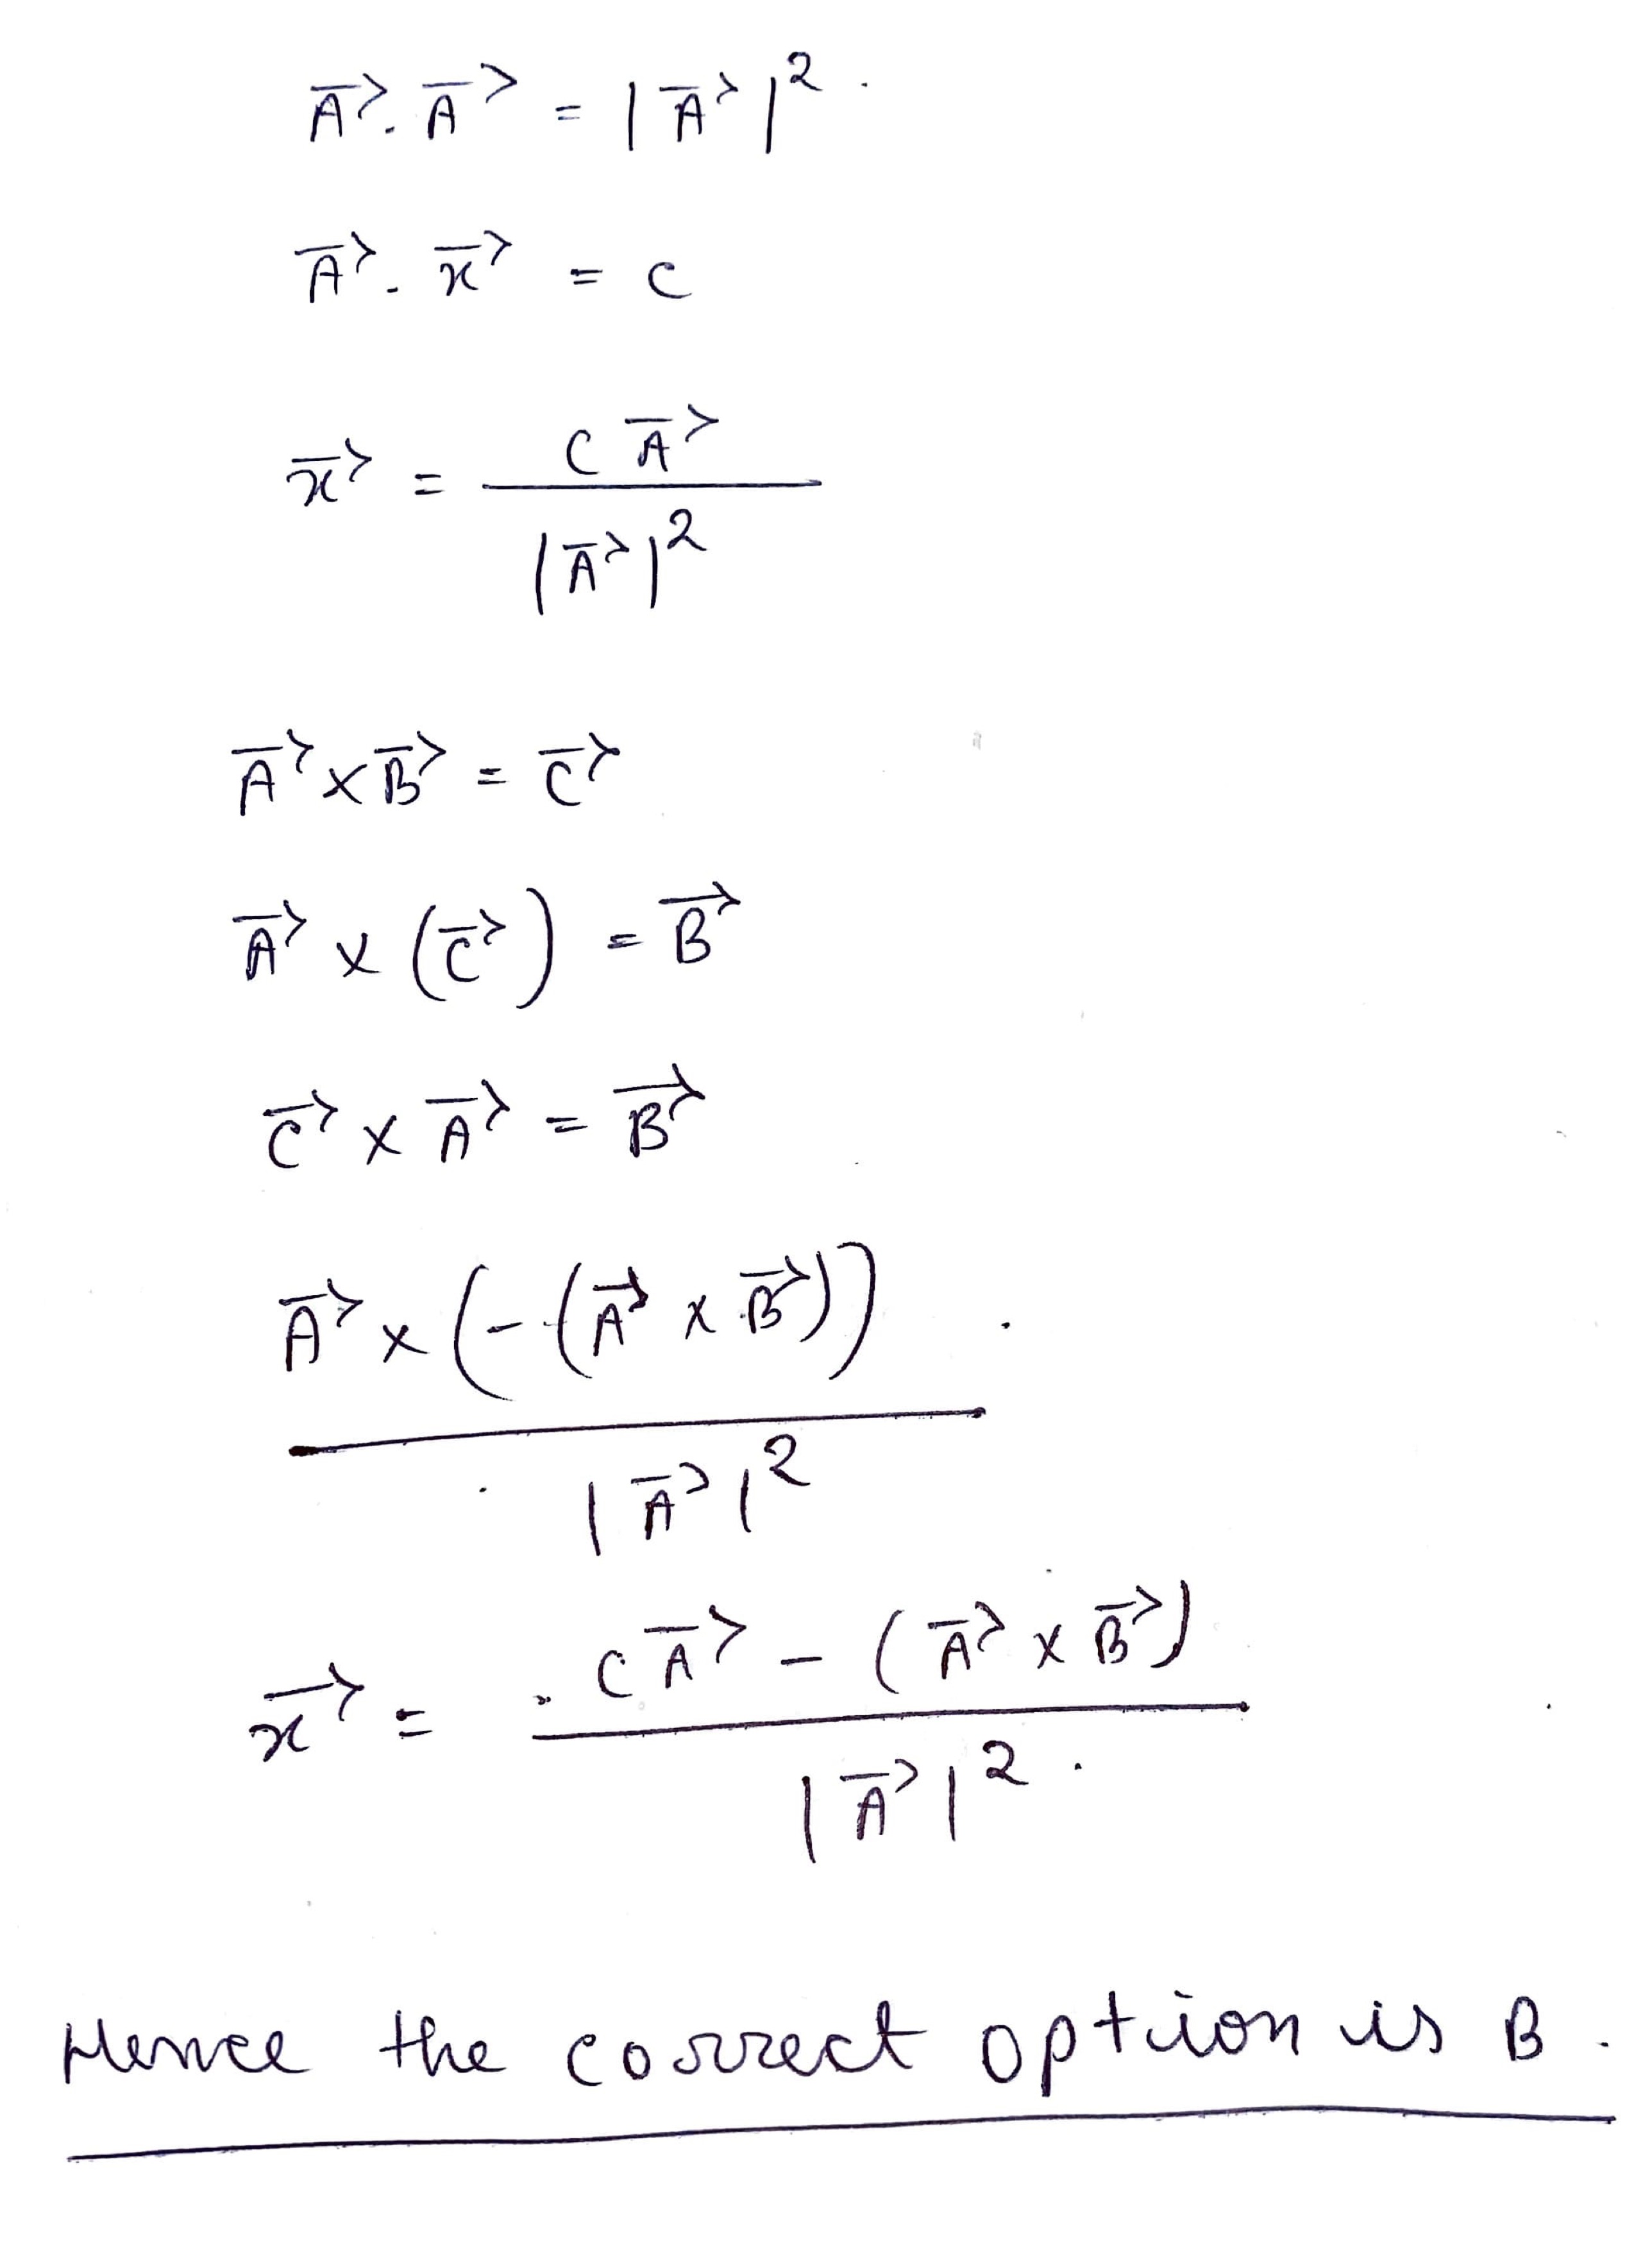 A⃗ . A⃗ = | A⃗ |² .
A⃗ . x⃗ = c
x⃗ = c A⃗ / | A⃗ |²
A⃗ × B⃗ = C⃗
A⃗ × ( C⃗ ) = B⃗
C⃗ × A⃗ = B⃗
A⃗ × ( - ( A⃗ × B⃗ ) ) / | A⃗ |²
x⃗ = c A⃗ - ( A⃗ × B⃗ ) / | A⃗ |² .
Hence the correct option is B .